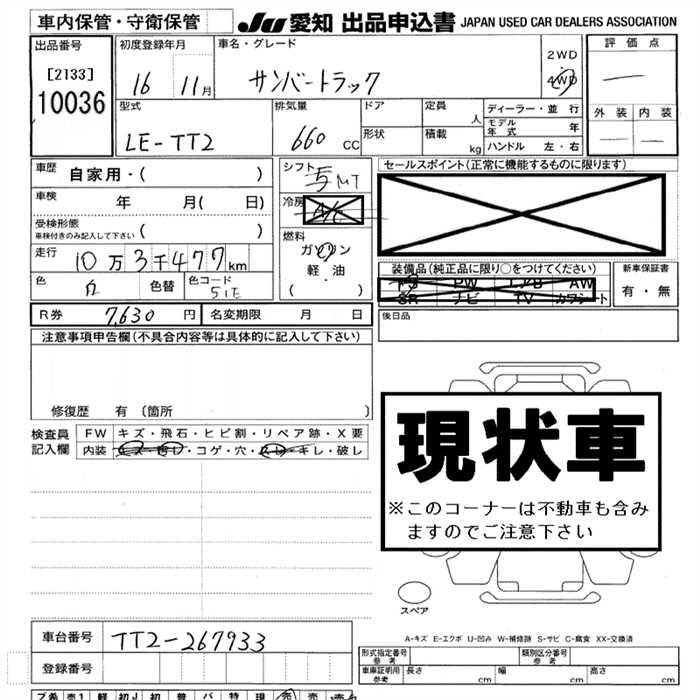 車内保管・守衛保管 JU 愛知 出品申込書 JAPAN USED CAR DEALERS ASSOCIATION
出品番号 初度登録年月 車名・グレード 2WD 評価点
[2133] 16 11月 サンバートラック 4WD —
10036
型式 排気量 ドア 定員 人 ディーラー・並行 外装 内装
LE-TT2 660 CC 形状 積載 kg モデル年式 年 — —
ハンドル 左・右
車歴 自家用・( ) シフト 5MT セールスポイント(正常に機能するものに限ります)
車検 年 月( 日) 冷房 A/C
受検形態 ( )
車検付きのみ記入して下さい
燃料 ガソリン
走行 10万3千477km 軽油 装備品(純正品に限り○をつけてください) 新車保証書
色 白 色替 色コード 51E ( ・ ) PS PW AW 有・無
SR ナビ TV カワシート
R券 7,630円 名変期限 月 日 後日品
注意事項申告欄(不具合内容等は具体的に記入して下さい)
修復歴 有(箇所 )
現状車
※このコーナーは不動車も含み
ますのでご注意下さい
検査員 FW キズ・飛石・ヒビ割・リペア跡・X要
記入欄 内装 キズ・コゲ・穴・スレ・キレ・破レ
スペア
車台番号 TT2-267933 A-キズ E-エクボ U-凹み W-補修跡 S-サビ C-腐食 XX-交換済
登録番号 形式指定番号 参考 類別区分番号 参考
車庫証明用 参考 長さ cm 幅 cm 高さ cm